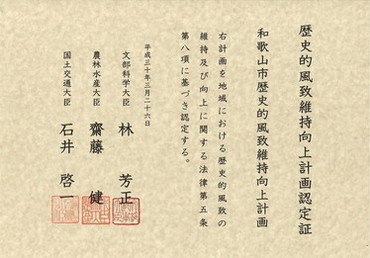 歴史的風致維持向上計画認定証
和歌山市歴史的風致維持向上計画
右計画を地域における歴史的風致の
維持及び向上に関する法律第五条
第八項に基づき認定する。
平成三十年三月二十六日
文部科学大臣 林 芳正
農林水産大臣 齋藤 健
国土交通大臣 石井 啓一